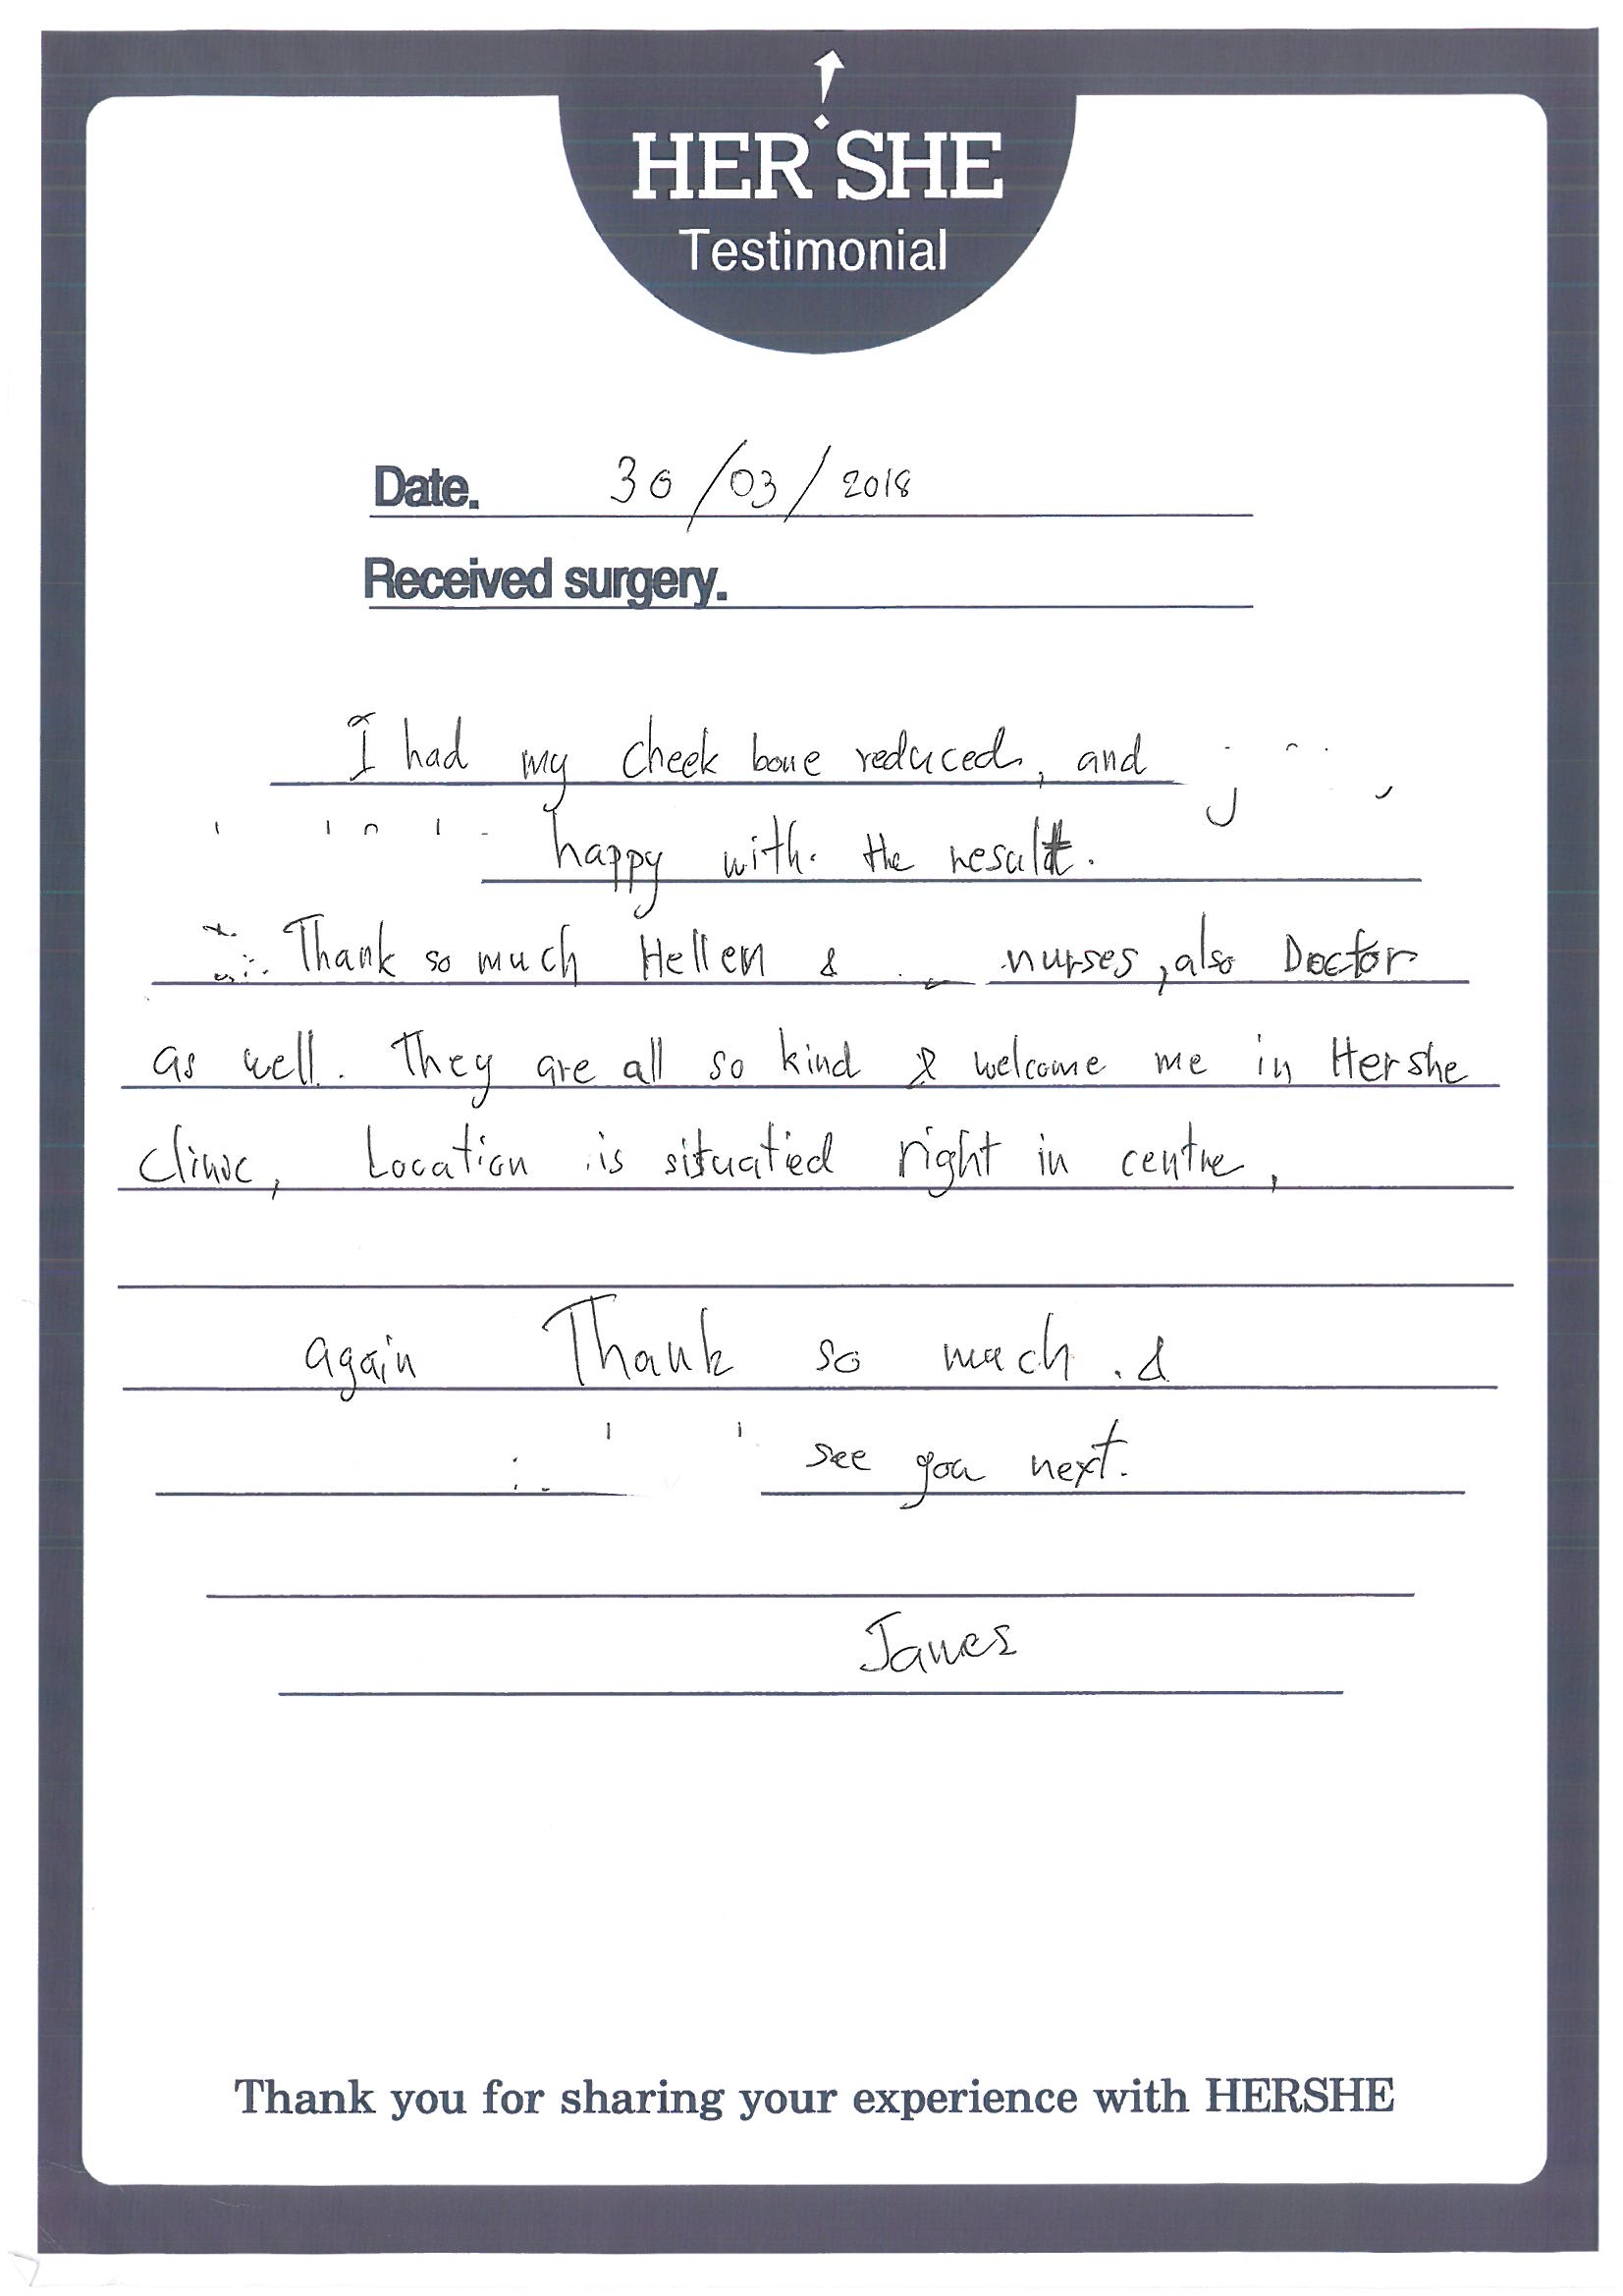 HER SHE
Testimonial
Date. 30/03/2018
Received surgery.
I had my cheek bone reduced, and
happy with. the result.
Thank so much Hellen & nurses, also Doctor
as well. They are all so kind & welcome me in Hershe
clinic, Location is situatied right in centre,
again Thank so much. &
see you next.
James
Thank you for sharing your experience with HERSHE